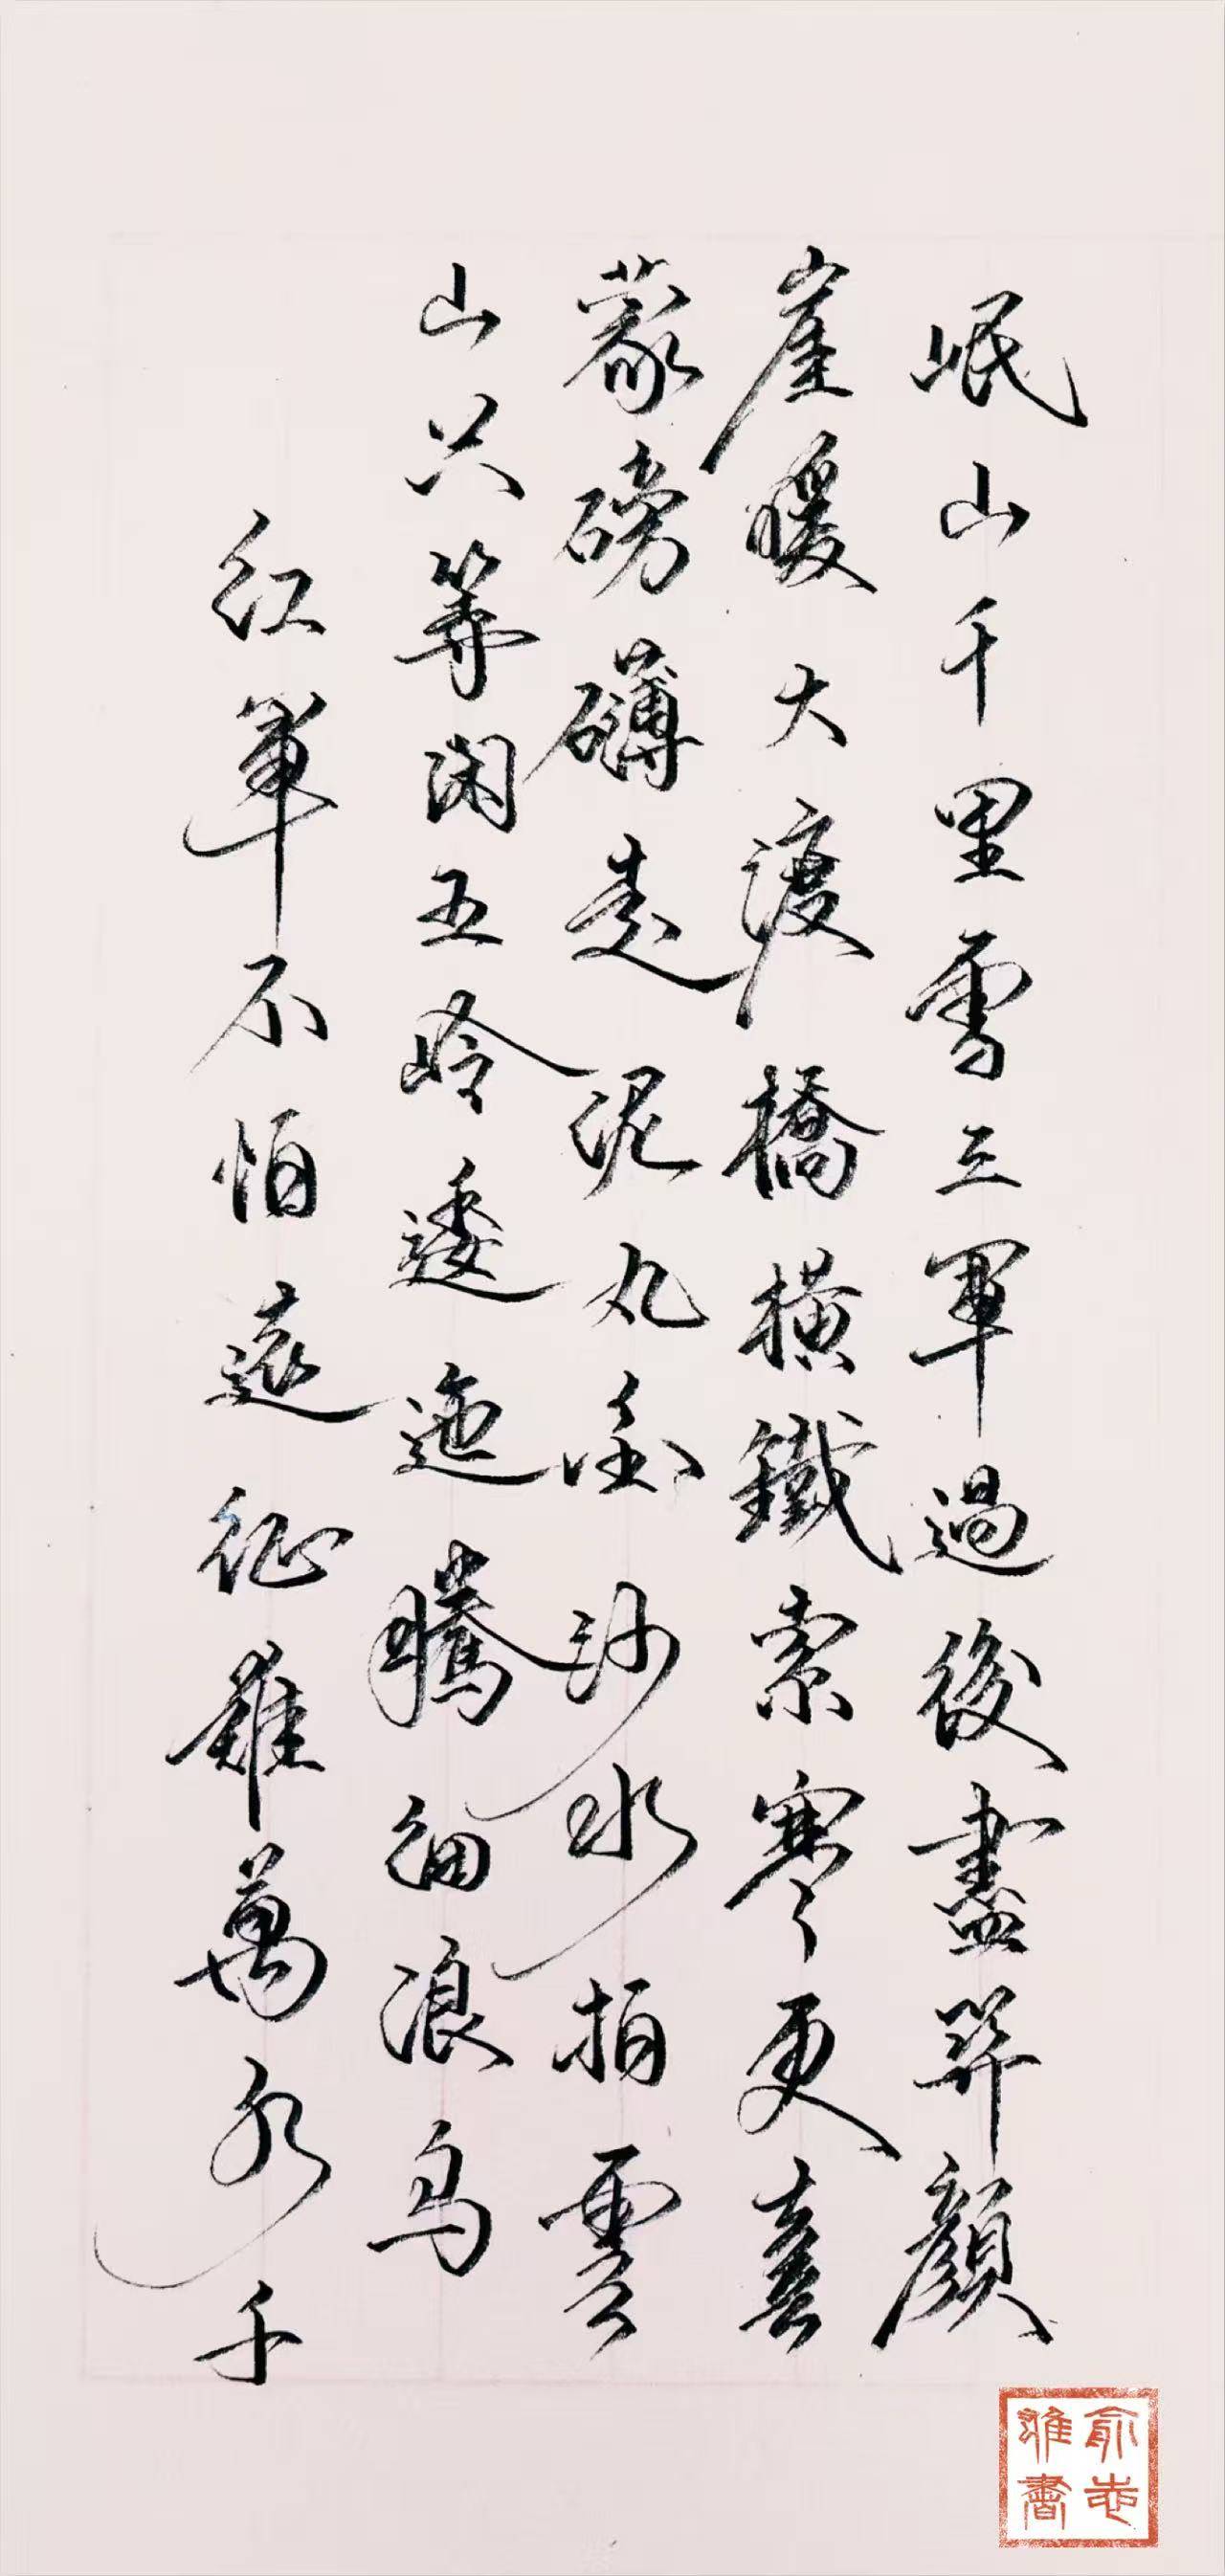 紅軍不怕遠征難萬水千
山只等閑五岭逶迤騰細浪烏
蒙磅礴走泥丸金沙水拍雲
崖暖大渡橋橫鐵索寒更喜
岷山千里雪三軍過後盡開顏
俞志雄書